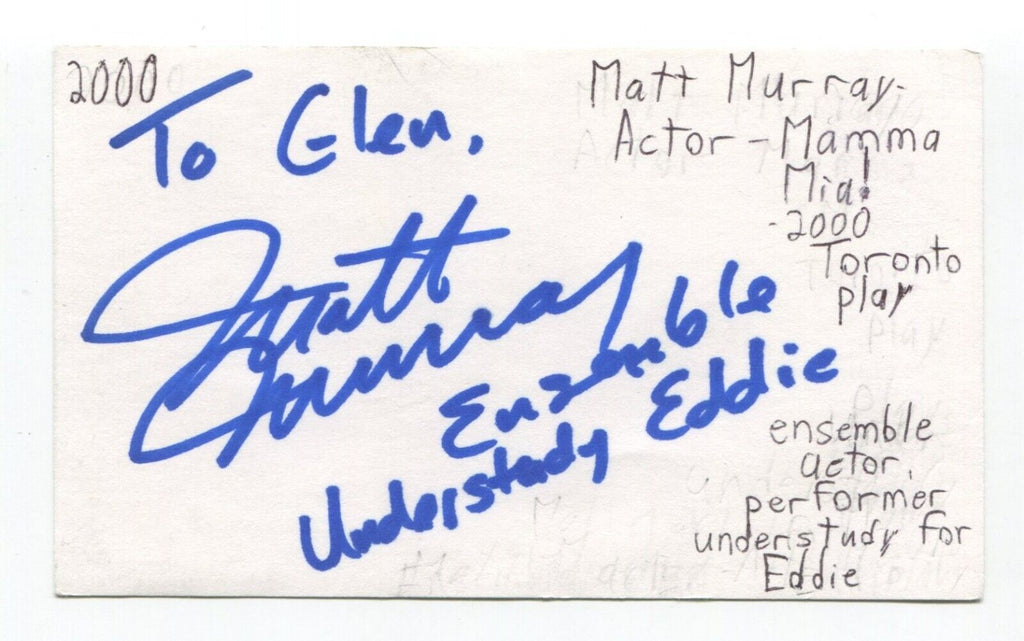 2000
To Glen,
Matt
Murray
Ensemble
Understudy Eddie
Matt Murray-
Actor - Mamma
Mia!
-2000
Toronto
play
ensemble
actor,
performer
understudy for
Eddie